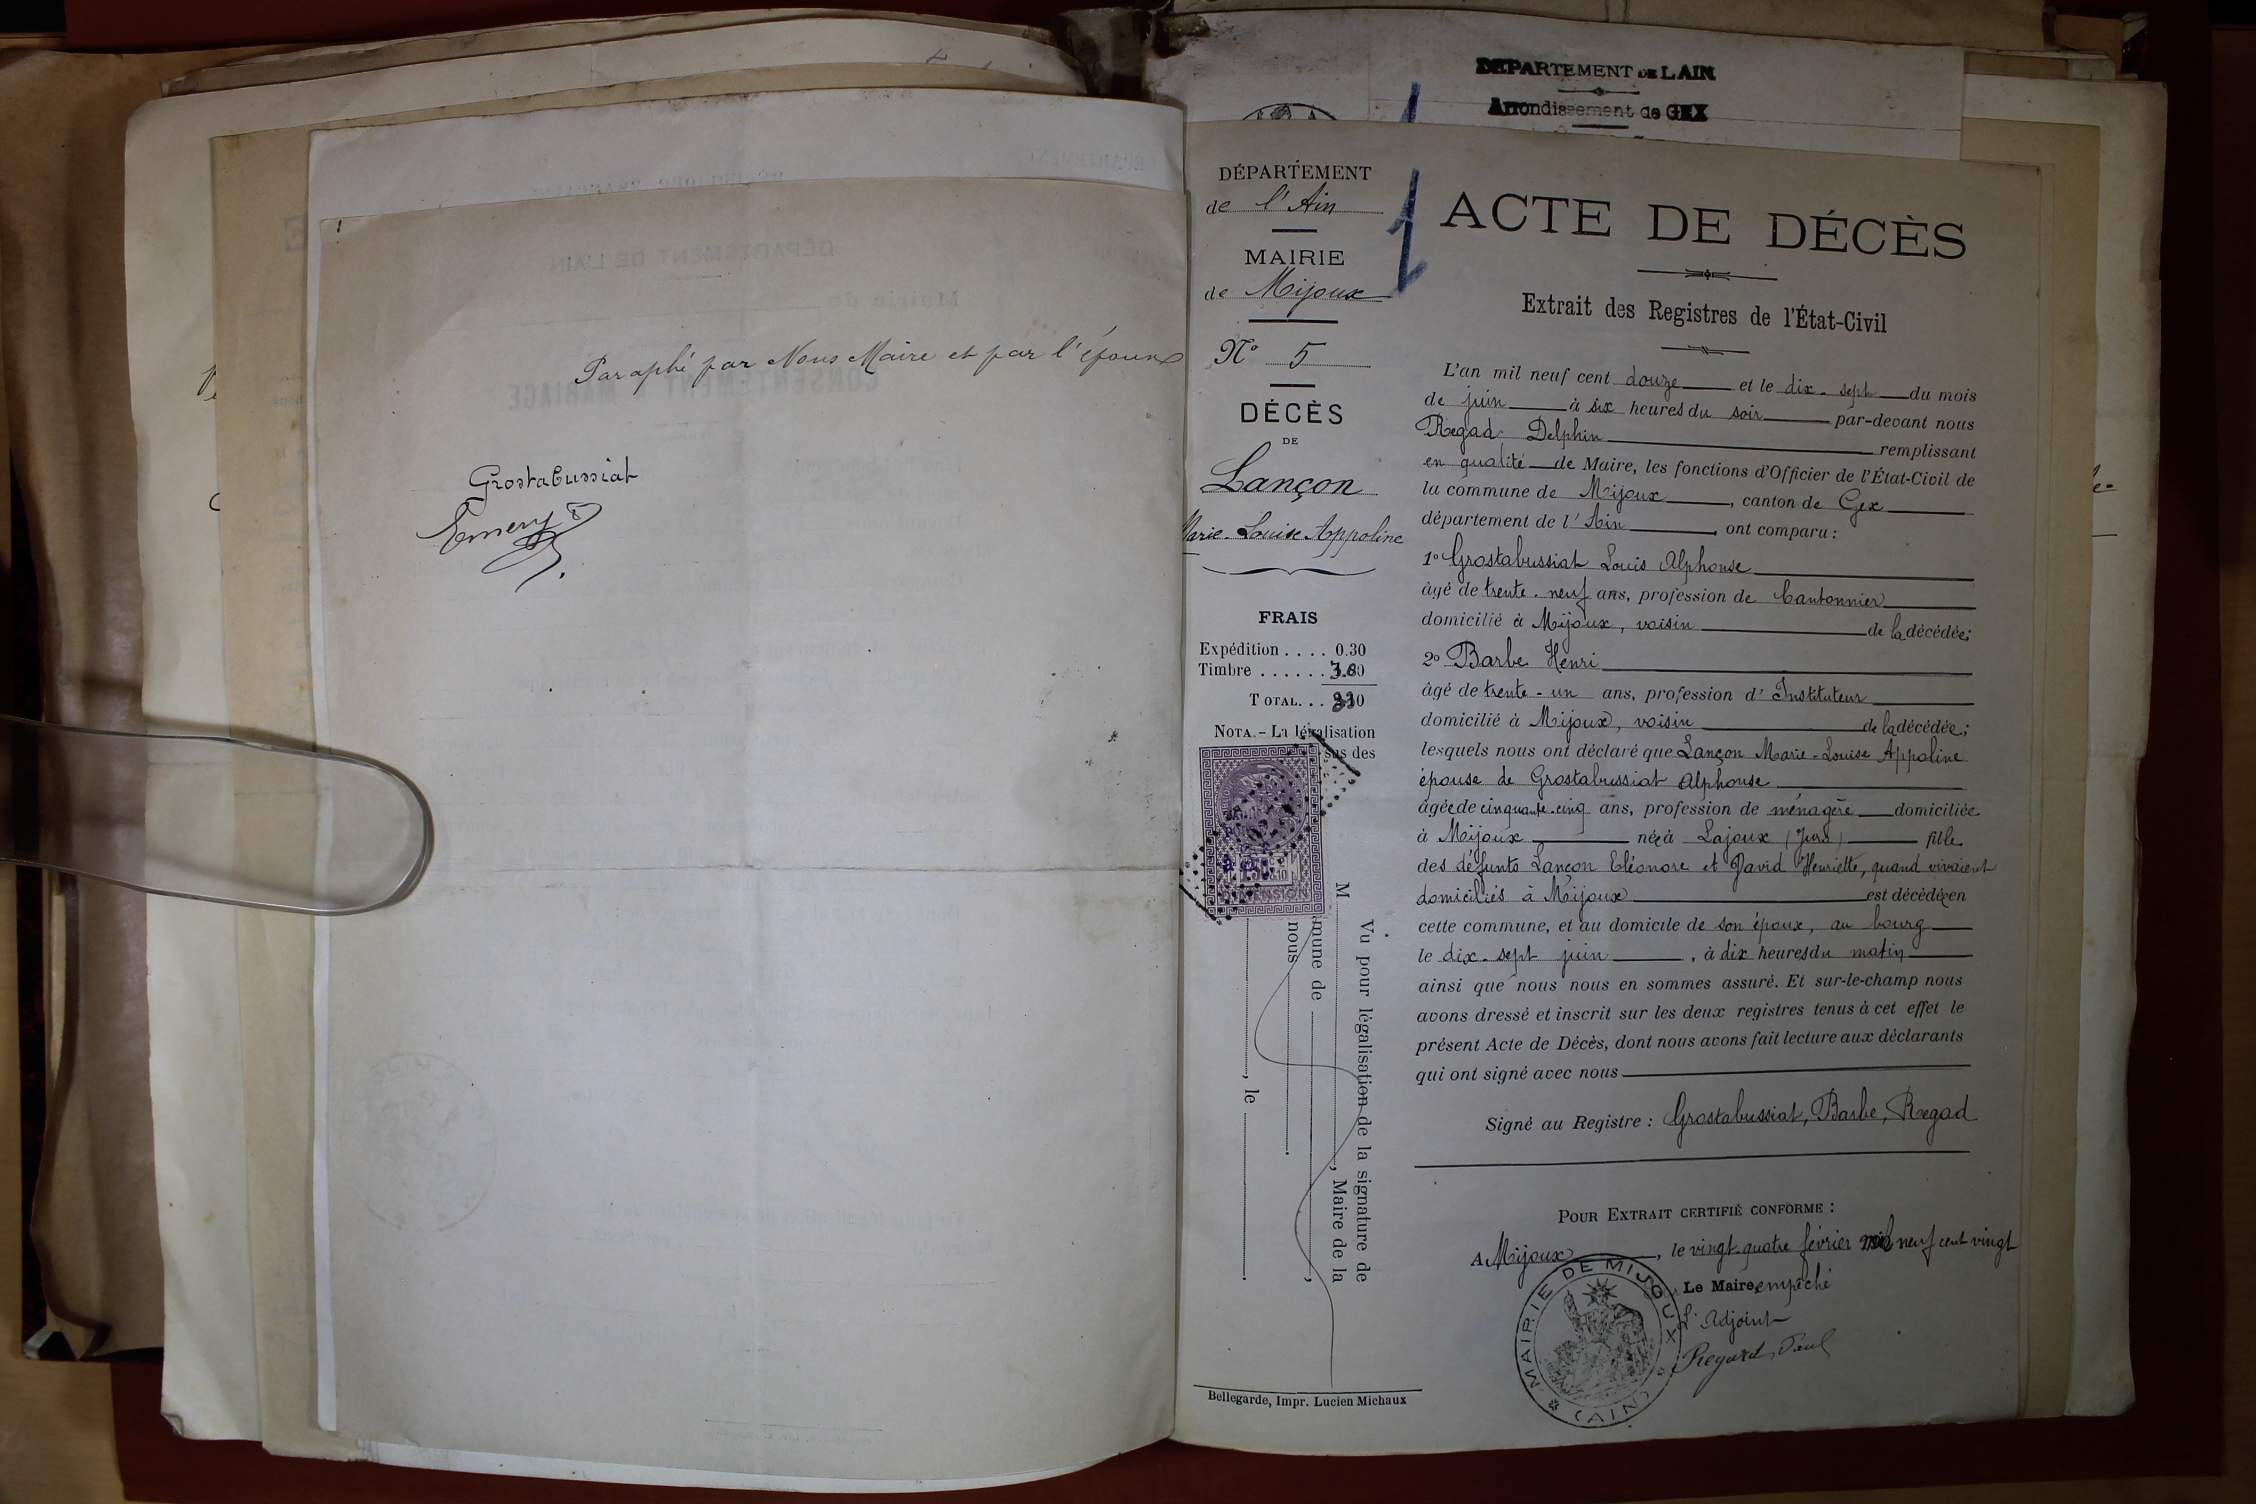 Paraphé par Nous Maire et par l'époux
Grostabussiat
Emery
DEPARTEMENT DE L'AIN
Arrondissement de GEX
DÉPARTEMENT
de l'Ain
MAIRIE
de Mijoux
N° 5
DÉCÈS
DE
Lançon
Marie-Louise Appoline
FRAIS
Expédition . . . . 0.30
Timbre . . . . . .
TOTAL. . .
NOTA. – La légalisation
des
Vu pour légalisation de la signature de
M , Maire de la
mune de ,
nous .
, le .
Bellegarde, Impr. Lucien Michaux
ACTE DE DÉCÈS
Extrait des Registres de l'État-Civil
L'an mil neuf cent douze et le dix-sept du mois
de juin à six heures du soir par-devant nous
Regad Delphin remplissant
en qualité de Maire, les fonctions d'Officier de l'État-Civil de
la commune de Mijoux, canton de Gex
département de l'Ain, ont comparu :
1° Grostabussiat Louis Alphonse
âgé de trente-neuf ans, profession de Cantonnier
domicilié à Mijoux, voisin de la décédée;
2° Barbe Henri
âgé de trente-un ans, profession d'Instituteur
domicilié à Mijoux, voisin de la décédée;
lesquels nous ont déclaré que Lançon Marie-Louise Appoline
épouse de Grostabussiat Alphonse
âgée de cinquante-cinq ans, profession de ménagère domiciliée
à Mijoux née à Lajoux (Jura) fille
des défunts Lançon Eléonore et David Henriette, quand vivaient
domiciliés à Mijoux est décédée en
cette commune, et au domicile de son époux, au bourg
le dix-sept juin, à dix heures du matin
ainsi que nous nous en sommes assuré. Et sur-le-champ nous
avons dressé et inscrit sur les deux registres tenus à cet effet le
présent Acte de Décès, dont nous avons fait lecture aux déclarants
qui ont signé avec nous
Signé au Registre : Grostabussiat, Barbe, Regad
POUR EXTRAIT CERTIFIÉ CONFORME :
A Mijoux, le vingt-quatre février mil neuf cent vingt
Le Maire, empêché
L'Adjoint
Regard Paul
MAIRIE DE MIJOUX
(AIN)